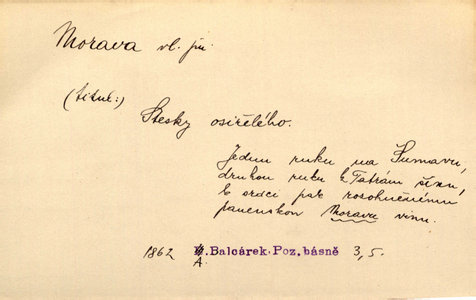 Morava vl. jm.
(titul:)
Stesky osiřelého.
Jednu ruku na Šumavu,
druhou ruku k Tatrám šinu,
k srdci pak rozohněnému
panenskou Moravu vinu.
1862 A. Balcárek Poz. básně 3, 5.